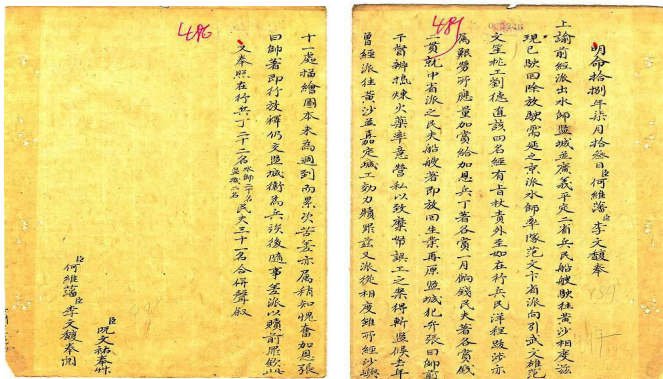 明命拾捌年柒月拾叁日臣何維藩臣李文馥奉
上諭前經派出水師監城並廣義平定二省兵民船艘駛往黃沙相度滋
現已駛回除放駛需延之京派水師率隊范文卞省派向引武文雄范
文笙挑工劉德直該四名經有旨杖責外至如在行兵民洋程跋涉亦
属艱勞所應量加賞給加恩兵丁著各賞一月俸錢民夫著各賞錢
二貫就中省派之民夫船艘著即放回生業再原監城犯弁張曰帥前
干督辦熬煉火藥率意營私以致糜帑誤工之案得斬監候去年
曾經派往黃沙並嘉定城工効力贖罪茲又派從相度雖所經沙嶼
十一處描繪圖本未為週到而累次苦差亦属稍知愧奮加恩張
曰帥著即行放釋仍交監城衛為兵該後隨事差派以贖前罪欽此
又奉照在行兵丁二十二名水師二十名監城二名民夫三十一名合併聲敘
臣阮文祐奉艸
臣何維藩臣李文馥奉閱
486
487
000245
159